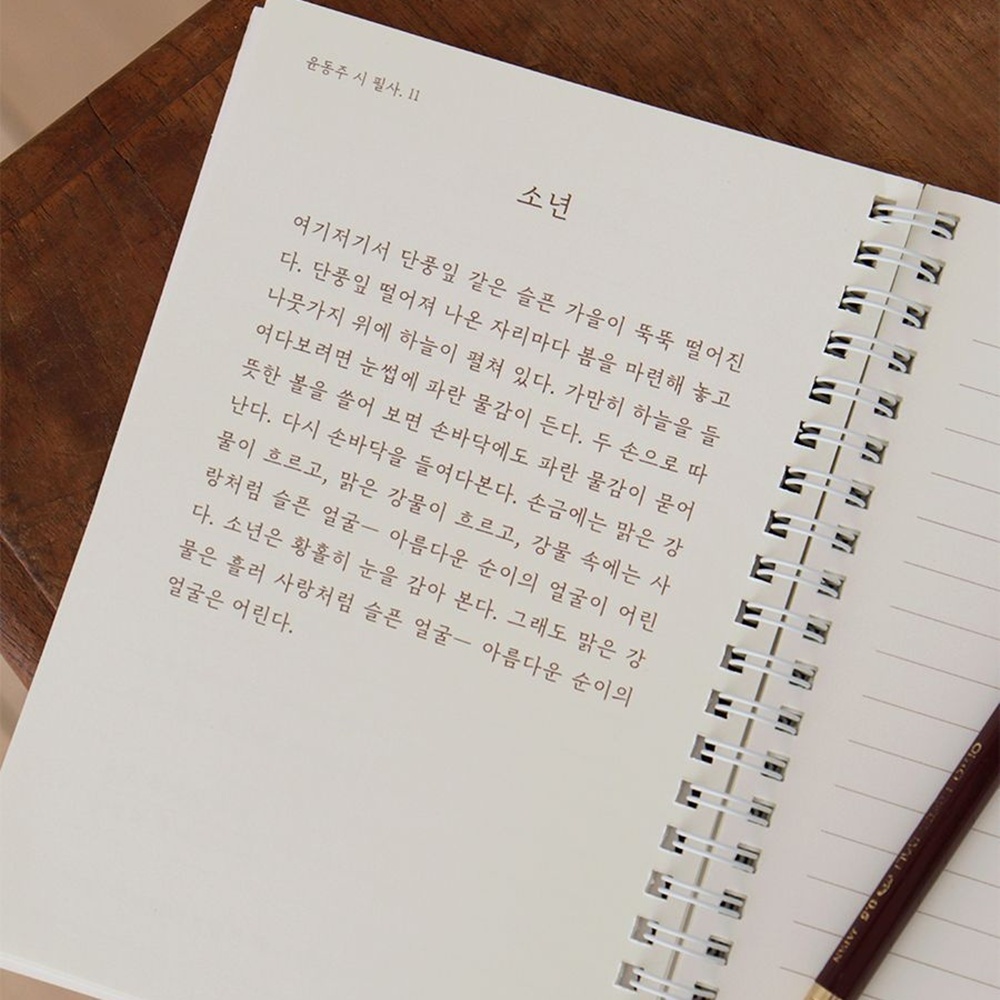 윤동주 시 필사. 11
소년
여기저기서 단풍잎 같은 슬픈 가을이 뚝뚝 떨어진
다. 단풍잎 떨어져 나온 자리마다 봄을 마련해 놓고
나뭇가지 위에 하늘이 펼쳐 있다. 가만히 하늘을 들
여다보려면 눈썹에 파란 물감이 든다. 두 손으로 따
뜻한 볼을 쓸어 보면 손바닥에도 파란 물감이 묻어
난다. 다시 손바닥을 들여다본다. 손금에는 맑은 강
물이 흐르고, 맑은 강물이 흐르고, 강물 속에는 사
랑처럼 슬픈 얼굴— 아름다운 순이의 얼굴이 어린
다. 소년은 황홀히 눈을 감아 본다. 그래도 맑은 강
물은 흘러 사랑처럼 슬픈 얼굴— 아름다운 순이의
얼굴은 어린다.